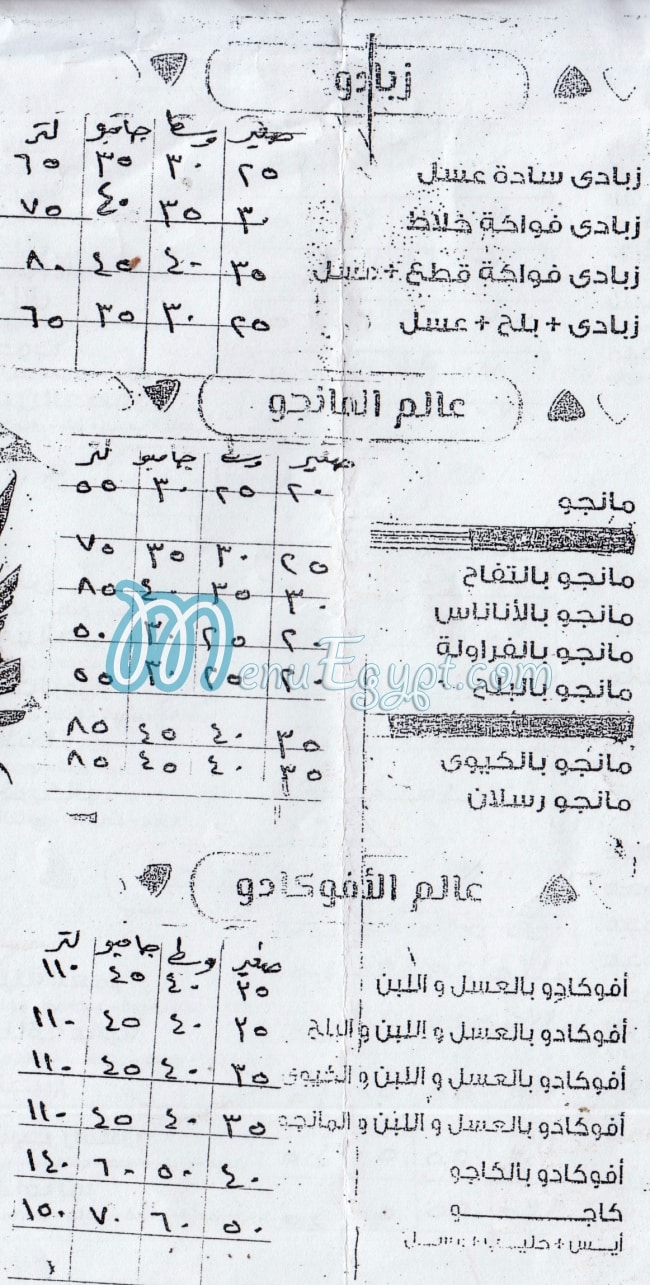 زبادو
صغير وسط جامبو لتر
زبادى سادة عسل ٢٥ ٣٠ ٣٥ ٦٥
زبادى فواكة خلاط ٣٠ ٣٥ ٤٠ ٧٥
زبادى فواكة قطع + عسل ٣٥ ٤٠ ٤٥ ٨٠
زبادى + بلح + عسل ٢٥ ٣٠ ٣٥ ٦٥
عالم المانجو
صغير وسط جامبو لتر
مانجو ٢٠ ٢٥ ٣٠ ٥٥
مانجو بالتفاح ٢٥ ٣٠ ٣٥ ٧٥
مانجو بالأناناس ٣٠ ٣٥ ٤٠ ٨٥
مانجو بالفراولة ٢٠ ٢٥ ٣٠ ٥٠
مانجو بالبلح ٢٠ ٢٥ ٣٠ ٥٥
MenuEgypt.com
مانجو بالكيوى ٣٥ ٤٠ ٤٥ ٨٥
مانجو رسلان ٣٥ ٤٠ ٤٥ ٨٥
عالم الأفوكادو
صغير وسط جامبو لتر
أفوكادو بالعسل و اللبن ٣٥ ٤٠ ٤٥ ١١٠
أفوكادو بالعسل و اللبن و البلح ٣٥ ٤٠ ٤٥ ١١٠
أفوكادو بالعسل و اللبن و الكيوى ٣٥ ٤٠ ٤٥ ١١٠
أفوكادو بالعسل و اللبن و المانجو ٣٥ ٤٠ ٤٥ ١١٠
أفوكادو بالكاجو ٤٠ ٥٠ ٦٠ ١٤٠
كاجـــــــو ٥٠ ٦٠ ٧٠ ١٥٠
أيس + حليب + عسل